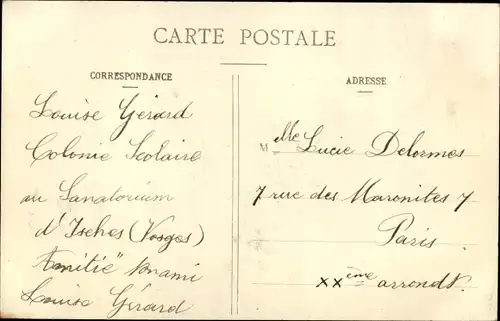 CARTE POSTALE
CORRESPONDANCE
Louise Gérard
Colonie Scolaire
au Sanatorium
d'Isches (Vosges)
Amitié
Louise Gérard
ADRESSE
Mlle Lucie Delormes
7 rue des Maronites 7
Paris
XXème arrondt.